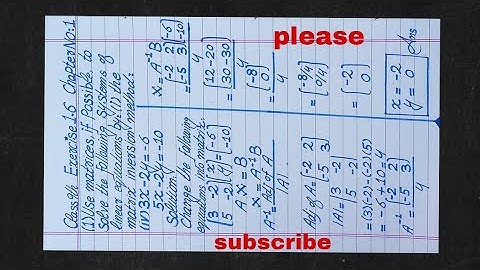 please
subscribe
Class 9th Exercise 1.6 Chapter No:1
(1) Use matrices, if possible, to
Solve the following systems of
linear equations by: (1) the
matrix inversion method:
(iv) 3x-2y=-6
5x-2y=-10
Solution:
Change the following
equations into matrix.
[3 -2][x]=[-6]
[5 -2][y]=[-10]
A X = B
X = A⁻¹B
A⁻¹ = Adj of A
|A|
Adj of A = [-2 2]
[-5 3]
|A| = |3 -2|
|5 -2|
=(3)(-2)-(-2)(5)
=-6+10=4
A⁻¹ = [-2 2]
[-5 3]
4
X = A⁻¹B
= [-2 2][-6]
[-5 3][-10]
4
= [12-20]
[30-30]
4
= [-8]
[0]
4
= [-8/4]
[0/4]
= [-2]
[0]
x = -2
y = 0
Ans